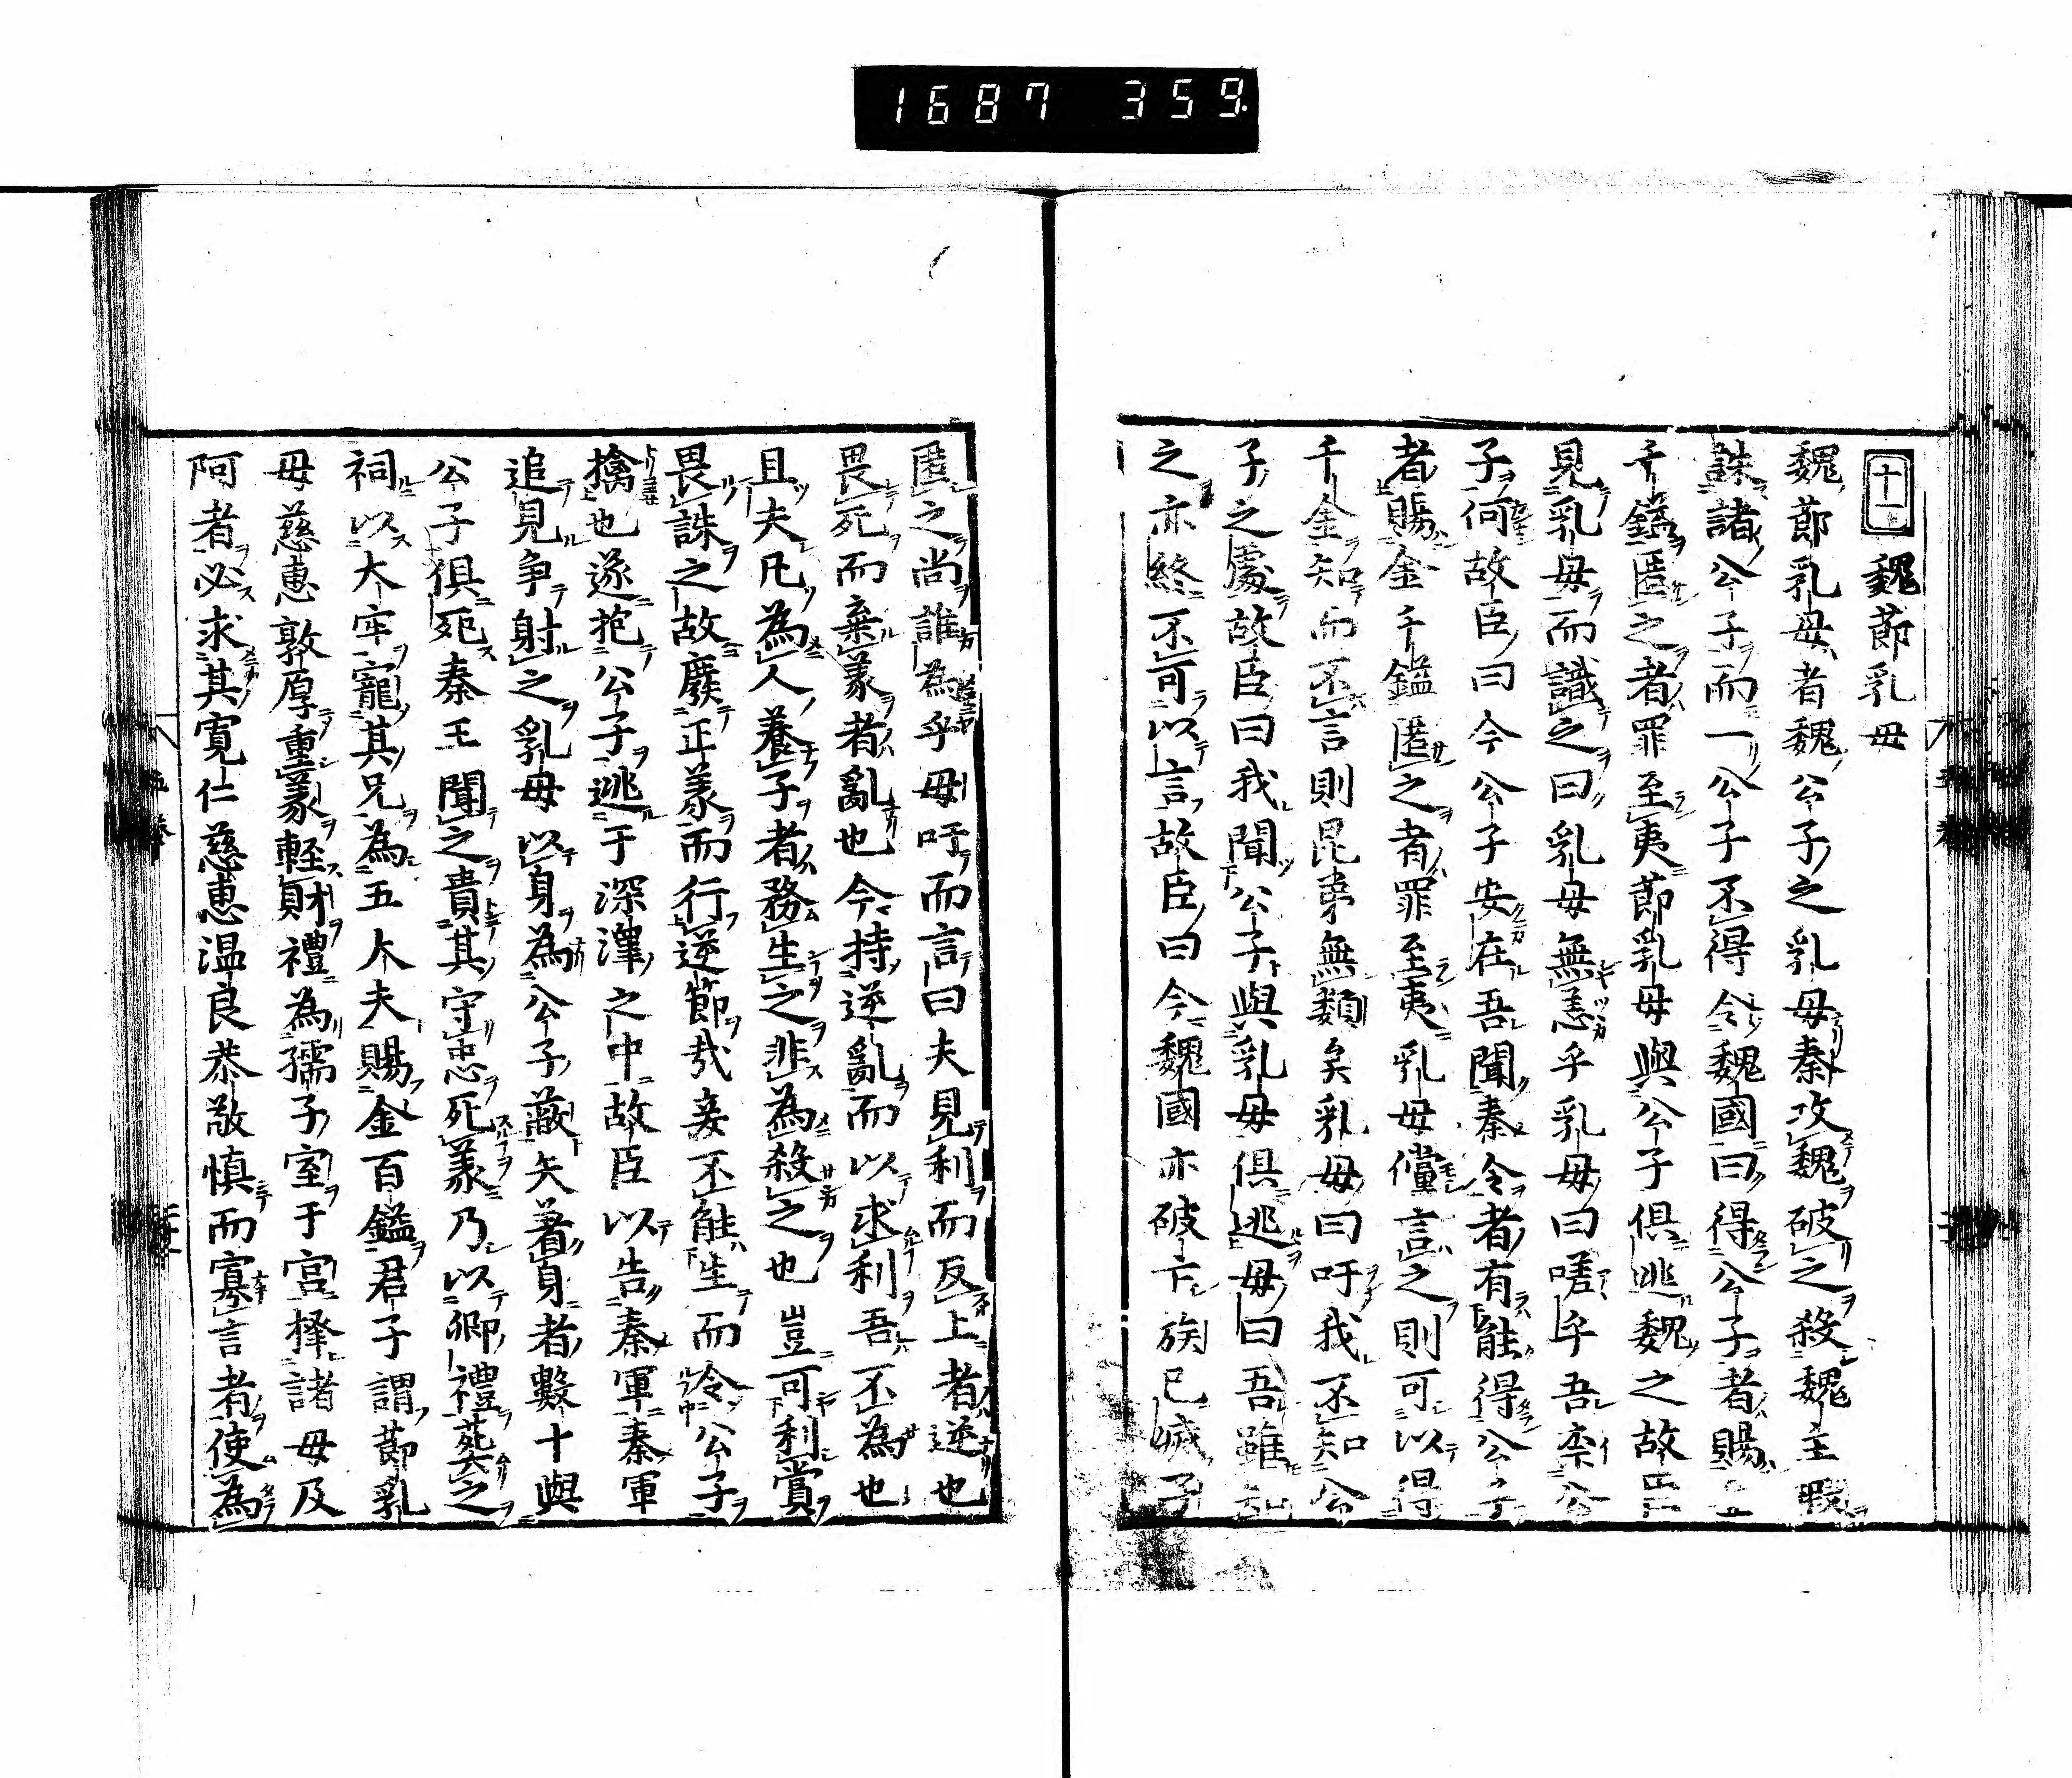 1687 359.
十一 魏節乳母
魏節乳母者魏公子之乳母秦攻魏破之殺魏主瑕
誅諸公子而一公子不得令魏國曰得公子者賜金
千鎰匿之者罪至夷節乳母與公子俱逃魏之故臣
見乳母而識之曰乳母無恙乎乳母曰嗟乎吾柰公
子何故臣曰今公子安在吾聞秦令者有能得公子
者賜金千鎰匿之者罪至夷乳母儻言之則可以得
千金知而不言則昆弟無類矣乳母曰吁我不知公
子之處故臣曰我聞公子與乳母俱逃母曰吾雖知
之亦終不可以言故臣曰今魏國亦破亡族已滅子
匿之尚誰為乎母吁而言曰夫見利而反上者逆也
畏死而棄義者亂也今持逆亂而以求利吾不為也
且夫凡為人養子者務生之非為殺之也豈可利賞
畏誅之故廢正義而行逆節哉妾不能生而令公子
擒也遂抱公子逃于深澤之中故臣以告秦軍秦軍
追見爭射之乳母以身為公子蔽矢著身者數十與
公子俱死秦王聞之貴其守忠死義乃以卿禮葬之
祠以大牢寵其兄為五大夫賜金百鎰君子謂節乳
母慈惠敦厚重義輕財禮為孺子室于宮擇諸母及
阿者必求其寬仁慈惠温良恭敬慎而寡言者使為